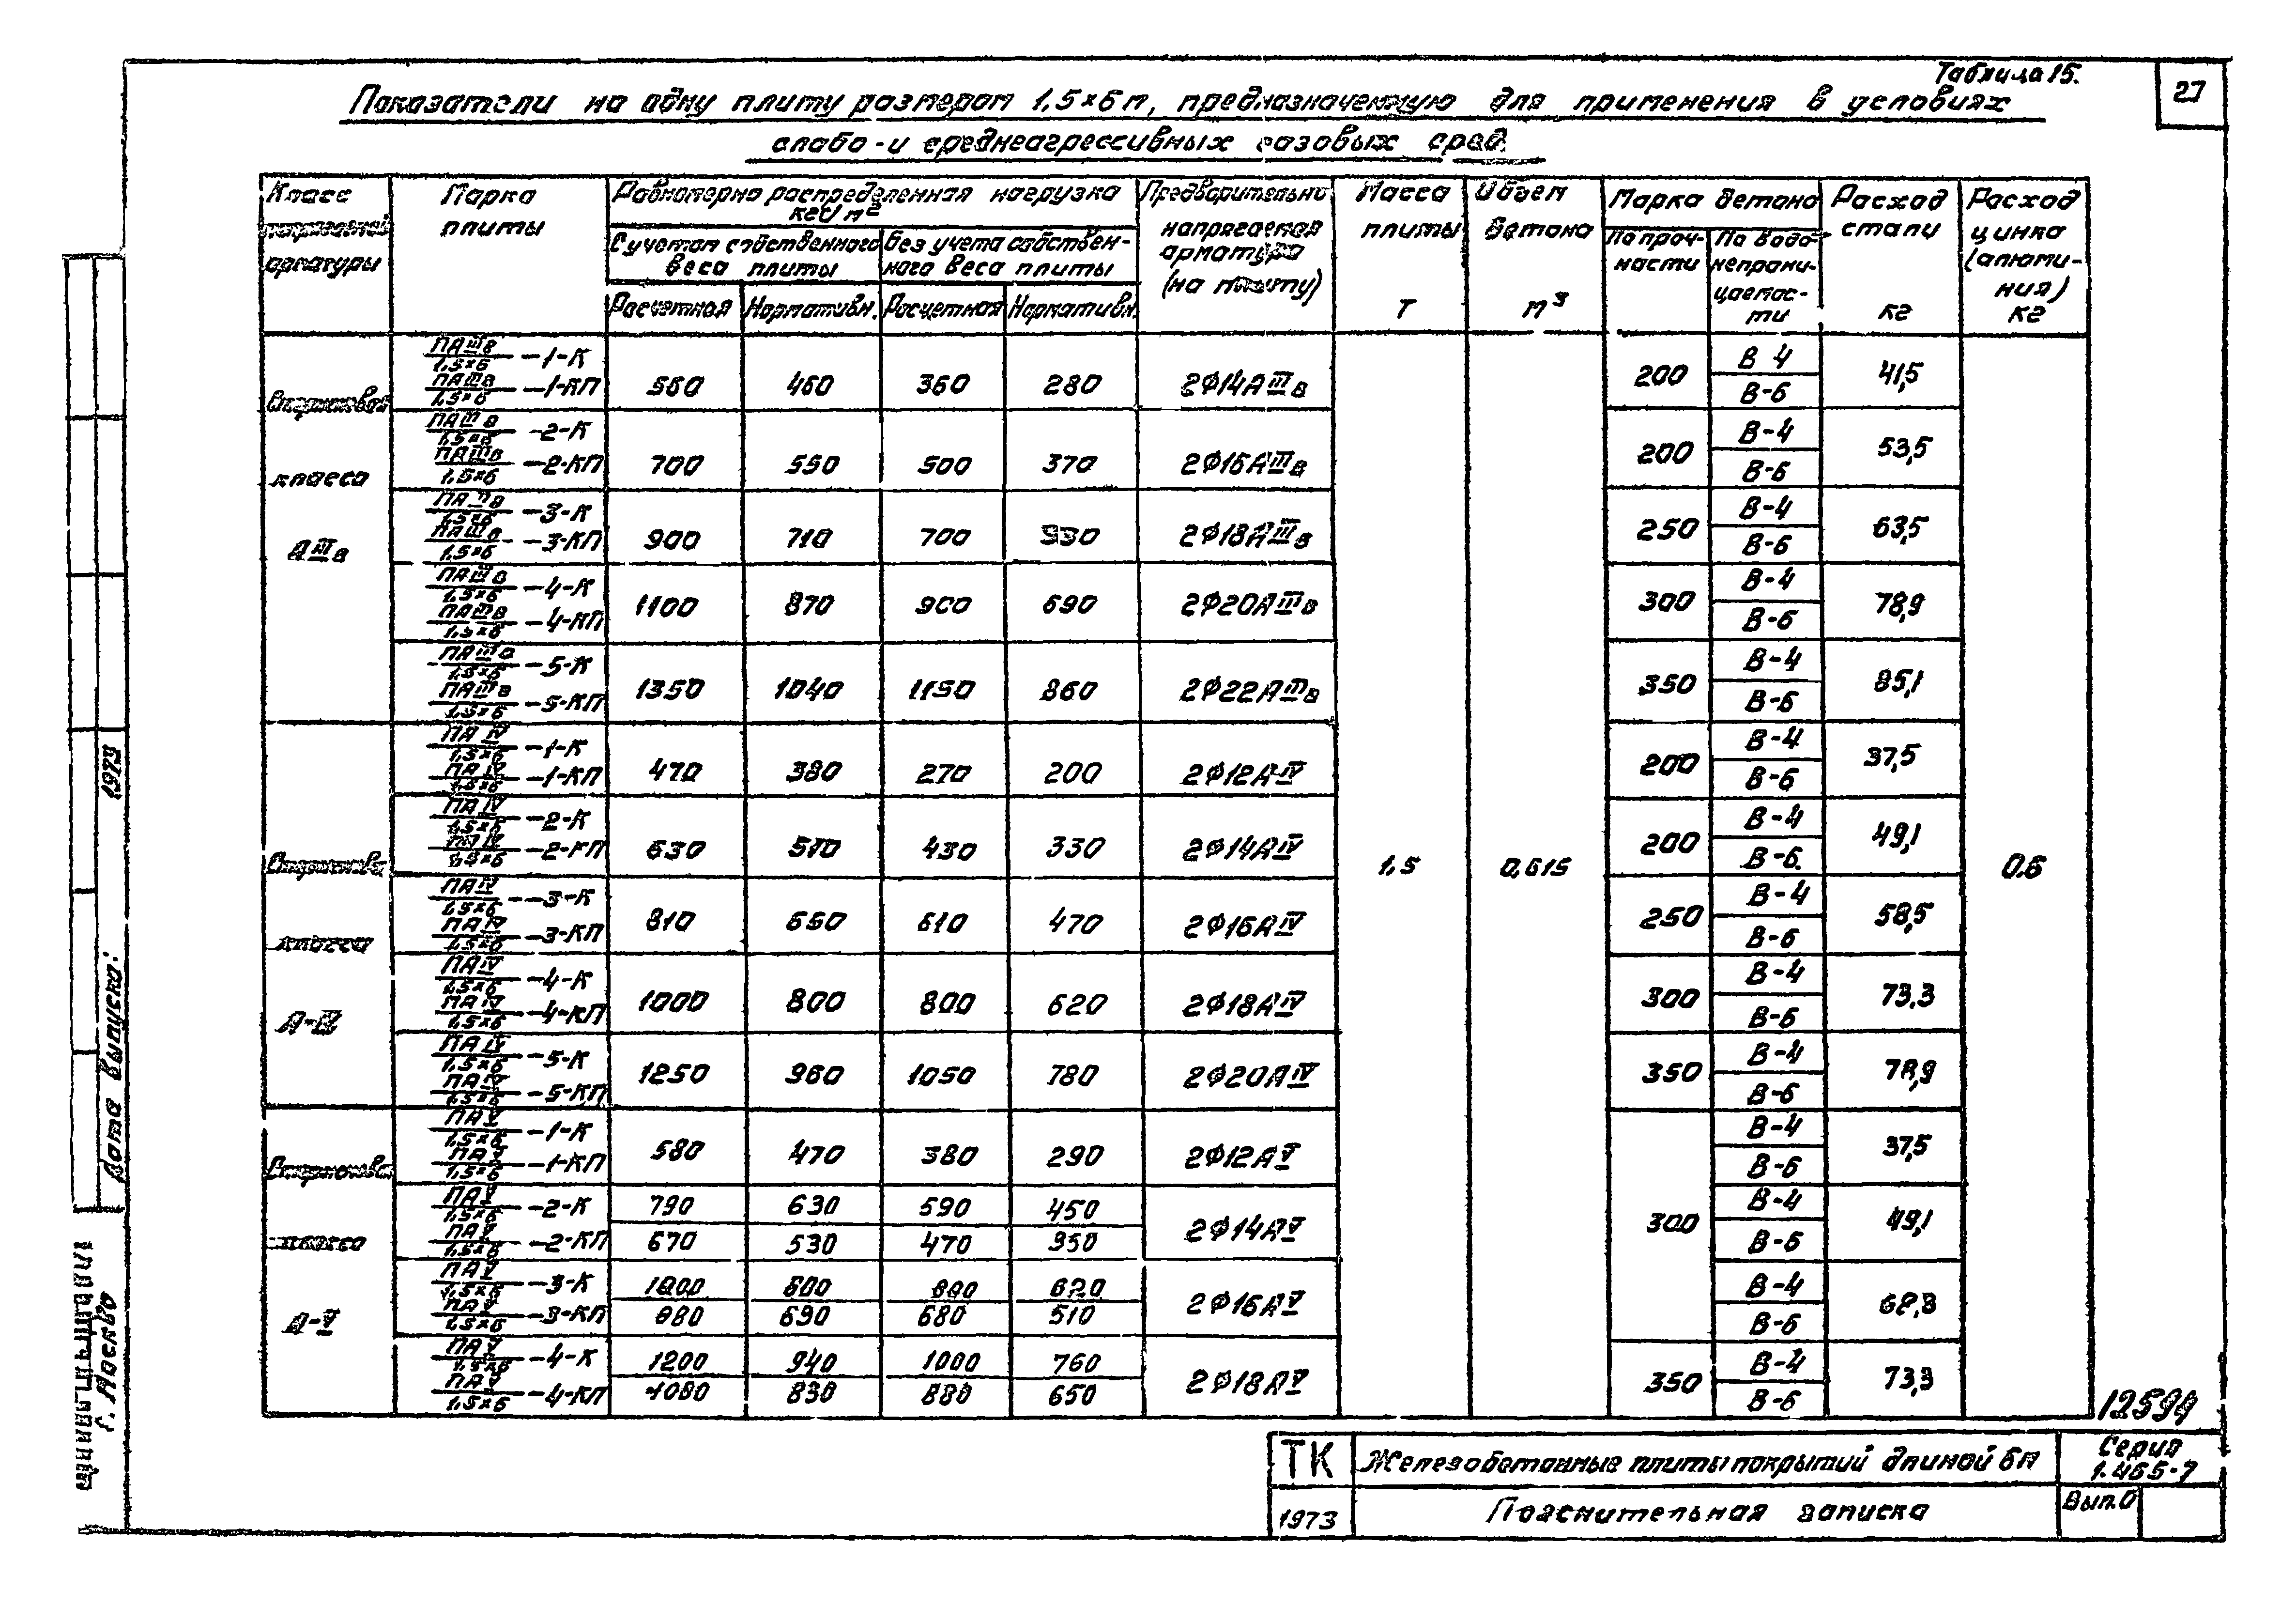 Таблица 15.
27
Показатели на одну плиту размером 1,5×6м, предназначенную для применения в условиях
слабо-и среднеагрессивных газовых сред
Класс напрягаемой арматуры
Марка плиты
Равномерно распределенная нагрузка кгс/м²
С учетом собственного веса плиты
Без учета собственного веса плиты
Расчетная Нормативн. Расчетная Нормативн.
Предварительно напрягаемая арматура (на плиту)
Масса плиты Т
Объем бетона м³
Марка бетона
По прочности
По водонепроницаемости
Расход стали кг
Расход цинка (алюминия) кг
Стержневая класса АIIIв
ПАIIIв/1,5×6 -1-К
ПАIIIв/1,5×6 -1-КП 560 460 360 280 2Ф14АIIIв 200 В-4 В-6 41,5
ПАIIIв/1,5×6 -2-К
ПАIIIв/1,5×6 -2-КП 700 550 500 370 2Ф16АIIIв 200 В-4 В-6 53,5
ПАIIIв/1,5×6 -3-К
ПАIIIв/1,5×6 -3-КП 900 710 700 530 2Ф18АIIIв 250 В-4 В-6 63,5
ПАIIIв/1,5×6 -4-К
ПАIIIв/1,5×6 -4-КП 1100 870 900 690 2Ф20АIIIв 300 В-4 В-6 78,9
ПАIIIв/1,5×6 -5-К
ПАIIIв/1,5×6 -5-КП 1350 1040 1150 860 2Ф22АIIIв 350 В-4 В-6 85,1
Стержневая класса А-IV
ПАIV/1,5×6 -1-К
ПАIV/1,5×6 -1-КП 470 380 270 200 2Ф12А-IV 200 В-4 В-6 37,5
ПАIV/1,5×6 -2-К
ПАIV/1,5×6 -2-КП 630 510 430 330 2Ф14АIV 200 В-4 В-6 49,1
1,5 0,615 0.6
ПАIV/1,5×6 -3-К
ПАIV/1,5×6 -3-КП 810 650 610 470 2Ф16АIV 250 В-4 В-6 58,5
ПАIV/1,5×6 -4-К
ПАIV/1,5×6 -4-КП 1000 800 800 620 2Ф18АIV 300 В-4 В-6 73,3
ПАIV/1,5×6 -5-К
ПАIV/1,5×6 -5-КП 1250 960 1050 780 2Ф20АIV 350 В-4 В-6 78,9
Стержневая класса А-V
ПАV/1,5×6 -1-К
ПАV/1,5×6 -1-КП 580 470 380 290 2Ф12АV В-4 В-6 37,5
ПАV/1,5×6 -2-К 790 630 590 450 2Ф14АV 300 В-4 49,1
ПАV/1,5×6 -2-КП 670 530 470 350 В-6
ПАV/1,5×6 -3-К 1000 800 800 620 2Ф16АV В-4
ПАV/1,5×6 -3-КП 880 690 680 510 В-6
ПАV/1,5×6 -4-К 1200 940 1000 760 2Ф18АV 350 В-4 73,3
ПАV/1,5×6 -4-КП 1080 830 880 650 В-6
12594
ТК Железобетонные плиты покрытий длиной 6м Серия 1.465-7
1973 Пояснительная записка Вып.0
Дата выпуска: 1973
г. Москва